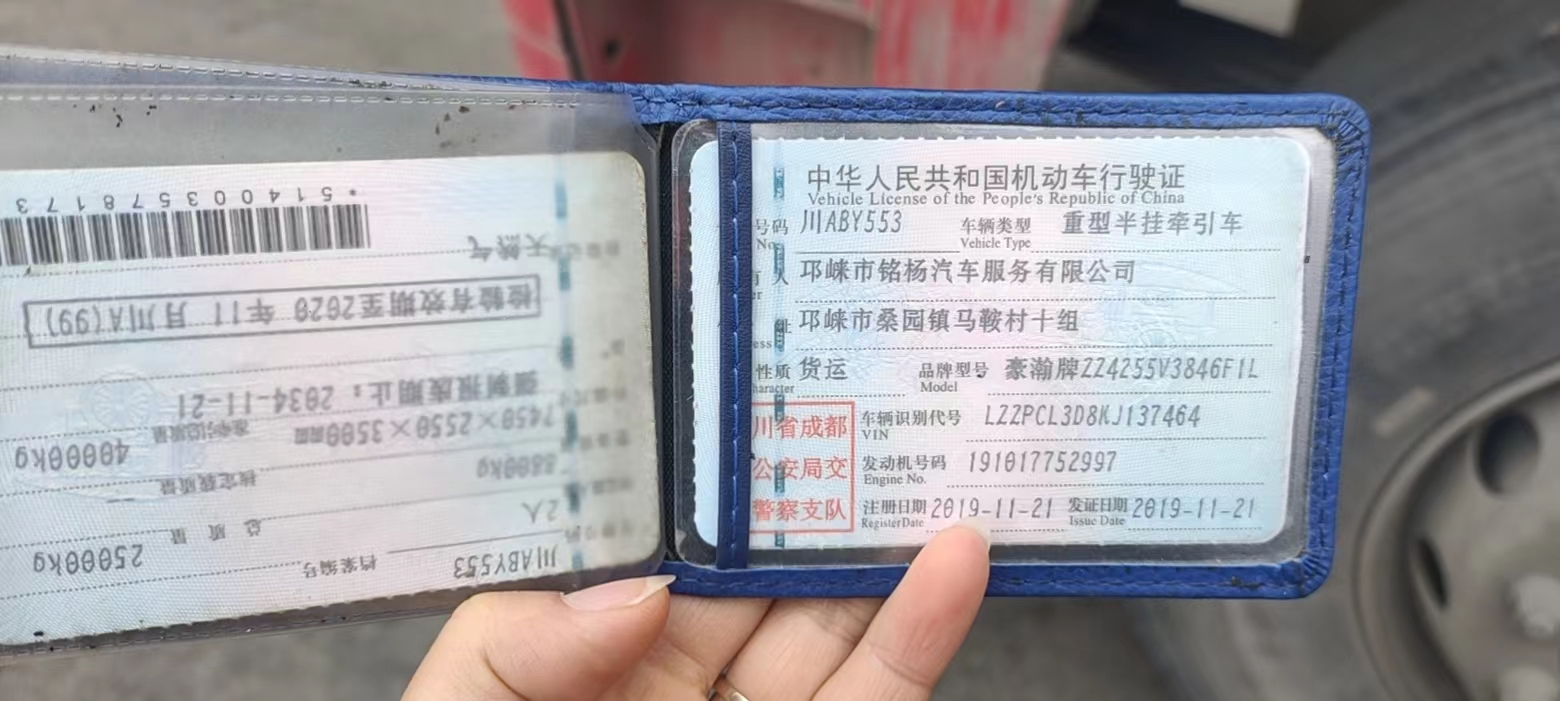 中华人民共和国机动车行驶证
Vehicle License of the People's Republic of China
号码 川ABY553 车辆类型 重型半挂牵引车
No. Vehicle Type
人 邛崃市铭杨汽车服务有限公司
er
址 邛崃市桑园镇马鞍村十组
ess
性质 货运 品牌型号 豪瀚牌ZZ4255V3846F1L
haracter Model
川省成都
公安局交
警察支队
车辆识别代号 LZZPCL3D8KJ137464
VIN
发动机号码 191017752997
Engine No.
注册日期 2019-11-21 发证日期 2019-11-21
Register Date Issue Date
川ABY553 档案编号
2人 总质量 25000kg
8800kg 核定载质量
7450×2550×3500mm 准牵引总质量 40000kg
强制报废期止：2034-11-21
检验有效期至2020年11月川A(99)
天然气
*5140035781773